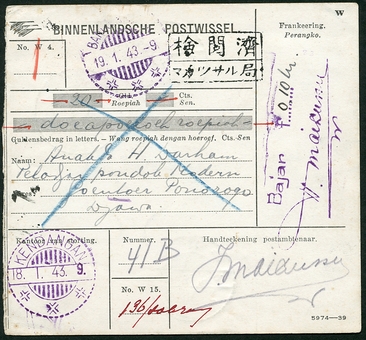 W
BINNENLANDSCHE POSTWISSEL.
Frankeering.
Perangko.
No. W 4.
19. 1. 43 -9
濟閲検
局ルサツカマ
20
Roepiah
Cts.
Sen
doea poeloeh roepiah
Guldensbedrag in letters. — Wang roepiah dengan hoeroef.
Cts.-Sen
Naam:
H. Darham
Pondok Modern
Ponorogo
Djawa
Bajan f 0.10
Kantoor van storting.
Nummer.
Handteekening postambtenaar.
KENDARI
18. 1. 43. 9.
41 B
No. W 15.
5974—39